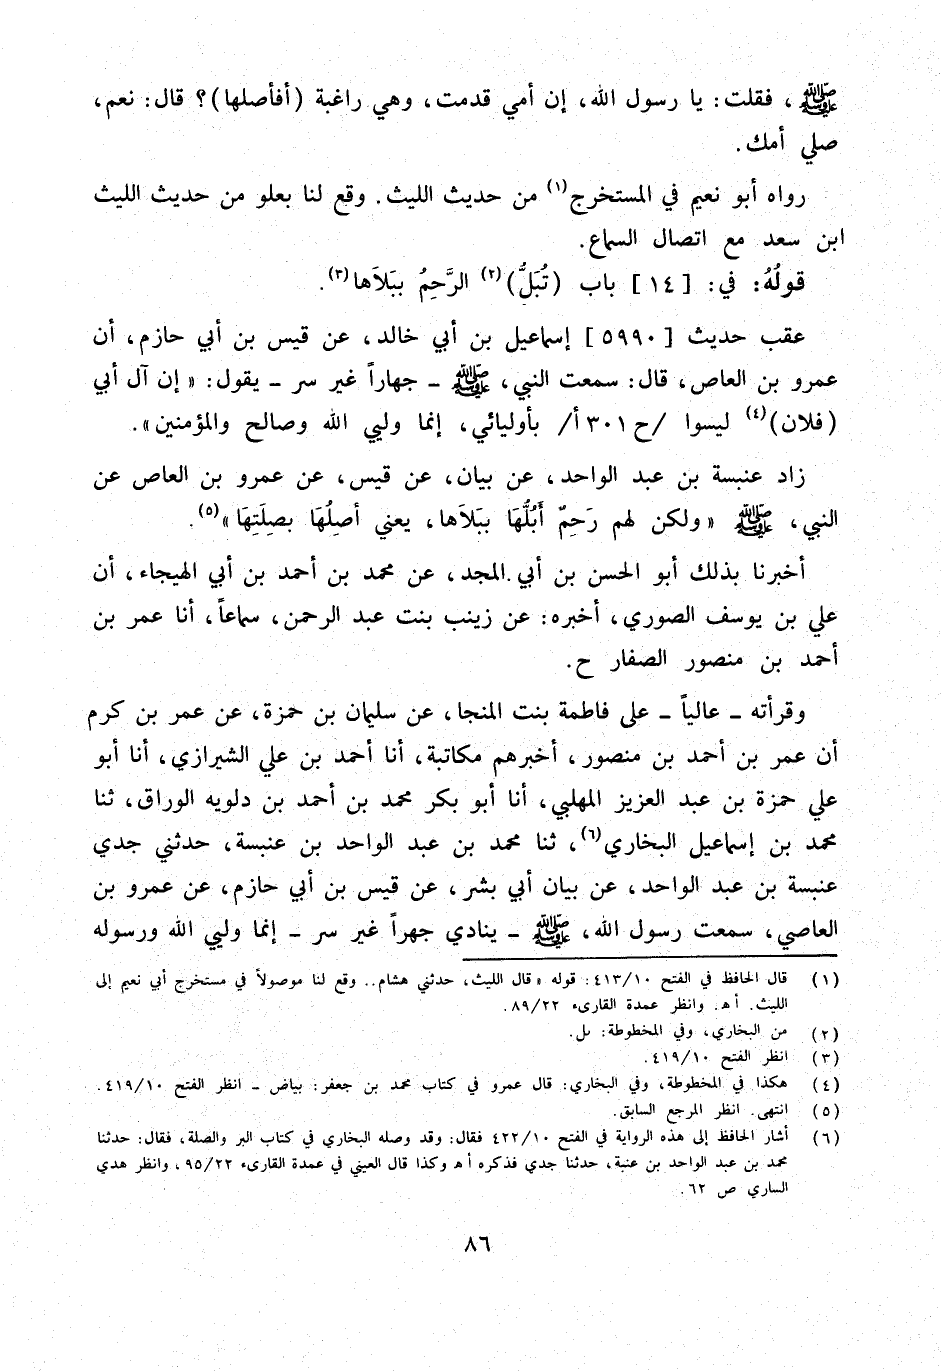 ﷺ، فقلت: يا رسول الله، إن أمي قدمت، وهي راغبة (أفأصلها)؟ قال: نعم،
صلي أمك.
رواه أبو نعيم في المستخرج(١) من حديث الليث. وقع لنا بعلو من حديث الليث
ابن سعد مع اتصال السماع.
قولُهُ: في: [١٤] باب (تُبَلُّ)(٢) الرَّحِمُ ببَلاَها(٣).
عقب حديث [٥٩٩٠] إسماعيل بن أبي خالد، عن قيس بن أبي حازم، أن
عمرو بن العاص، قال: سمعت النبي، ﷺ ـ جهاراً غير سر ـ يقول: «إن آل أبي
(فلان)(٤) ليسوا /ح٣٠١أ/ بأوليائي، إنما وليي الله وصالح والمؤمنين».
زاد عنبسة بن عبد الواحد، عن بيان، عن قيس، عن عمرو بن العاص عن
النبي، ﷺ «ولكن لهم رَحِمٌ أَبُلُّهَا ببَلاَها، يعني أصِلُهَا بصِلَتِهَا»(٥).
أخبرنا بذلك أبو الحسن بن أبي.المجد، عن محمد بن أحمد بن أبي الهيجاء، أن
علي بن يوسف الصوري، أخبره: عن زينب بنت عبد الرحمن، سماعاً، أنا عمر بن
أحمد بن منصور الصفار ح.
وقرأته ـ عالياً ـ على فاطمة بنت المنجا، عن سليمان بن حمزة، عن عمر بن كرم
أن عمر بن أحمد بن منصور، أخبرهم مكاتبة، أنا أحمد بن علي الشيرازي، أنا أبو
علي حمزة بن عبد العزيز المهلبي، أنا أبو بكر محمد بن أحمد بن دلويه الوراق، ثنا
محمد بن إسماعيل البخاري(٦)، ثنا محمد بن عبد الواحد بن عنبسة، حدثني جدي
عنبسة بن عبد الواحد، عن بيان أبي بشر، عن قيس بن أبي حازم، عن عمرو بن
العاصي، سمعت رسول الله، ﷺ ـ ينادي جهراً غير سر ـ إنما وليي الله ورسوله
(١) قال الحافظ في الفتح ٤١٣/١٠: قوله «قال الليث، حدثني هشام.. وقع لنا موصولاً في مستخرج أبي نعيم إلى
الليث. أهـ. وانظر عمدة القارىء ٨٩/٢٢.
(٢) من البخاري، وفي المخطوطة: بل.
(٣) انظر الفتح ٤١٩/١٠.
(٤) هكذا في المخطوطة، وفي البخاري: قال عمرو في كتاب محمد بن جعفر: بياض ـ انظر الفتح ٤١٩/١٠.
(٥) انتهى. انظر المرجع السابق.
(٦) أشار الحافظ إلى هذه الرواية في الفتح ٤٢٢/١٠ فقال: وقد وصله البخاري في كتاب البر والصلة، فقال: حدثنا
محمد بن عبد الواحد بن عنبة، حدثنا جدي فذكره أهـ وكذا قال العيني في عمدة القارىء ٩٥/٢٢، وانظر هدي
الساري ص ٦٢.
٨٦